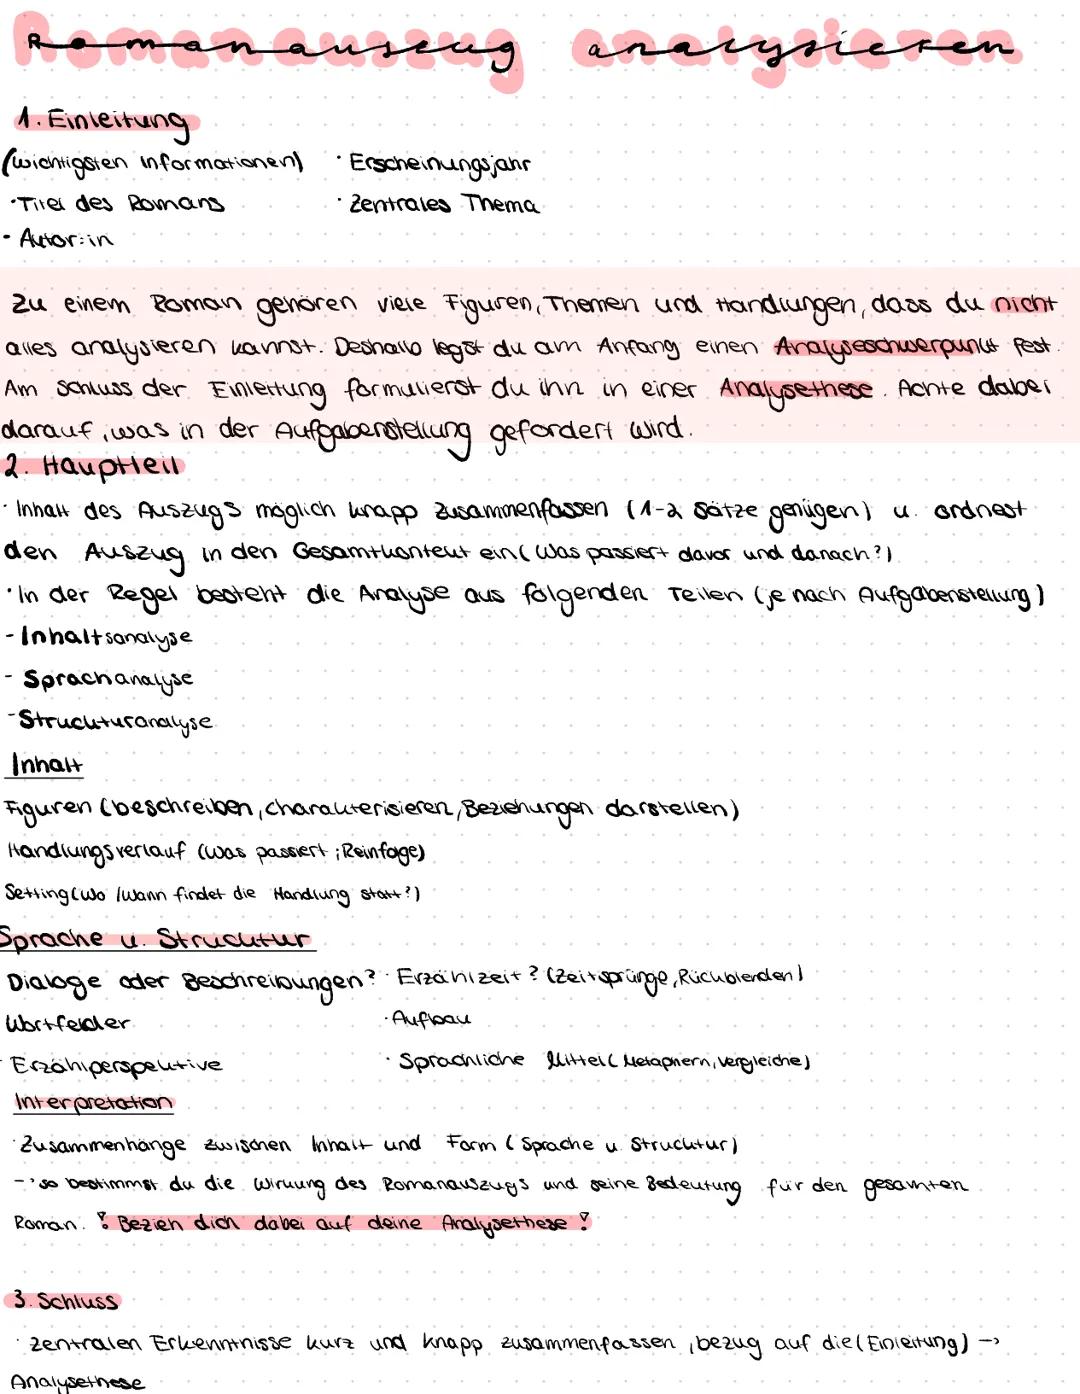 Romanauszug analysieren
1. Einleitung
(wichtigsten informationen) · Erscheinungsjahr
· Titel des Romans · Zentrales Thema
· Autor:in
Zu einem Roman gehören viele Figuren, Themen und Handlungen, dass du nicht
alles analysieren kannst. Deshalb legst du am Anfang einen Analyseschwerpunkt fest.
Am Schluss der Einleitung formulierst du ihn in einer Analysethese. Achte dabei
darauf, was in der Aufgabenstellung gefordert wird.
2. Hauptteil
· Inhalt des Auszugs möglich knapp zusammenfassen (1-2 Sätze genügen) u. ordnest
den Auszug in den Gesamtkontext ein (Was passiert davor und danach?)
· In der Regel besteht die Analyse aus folgenden Teilen (je nach Aufgabenstellung)
- Inhaltsanalyse
- Sprachanalyse
- Strukturanalyse
Inhalt
Figuren (beschreiben, charakterisieren, Beziehungen darstellen)
Handlungsverlauf (was passiert ; Reinfoge)
Setting (wo / wann findet die Handlung statt?)
Sprache u. Strucktur
Dialoge oder Beschreibungen? · Erzählzeit? (Zeitsprünge, Rückblenden)
Wortfelder · Aufbau
· Erzählperspektive · Sprachliche Mittel (Metaphern, vergleiche)
Interpretation
· Zusammenhänge zwischen Inhalt und Form (Sprache u. Strucktur)
-> so bestimmst du die Wirkung des Romanauszugs und seine Bedeutung für den gesamten
Roman. ! Bezieh dich dabei auf deine Analysethese !
3. Schluss
· zentralen Erkenntnisse kurz und knapp zusammenfassen, bezug auf die (Einleitung) ->
Analysethese